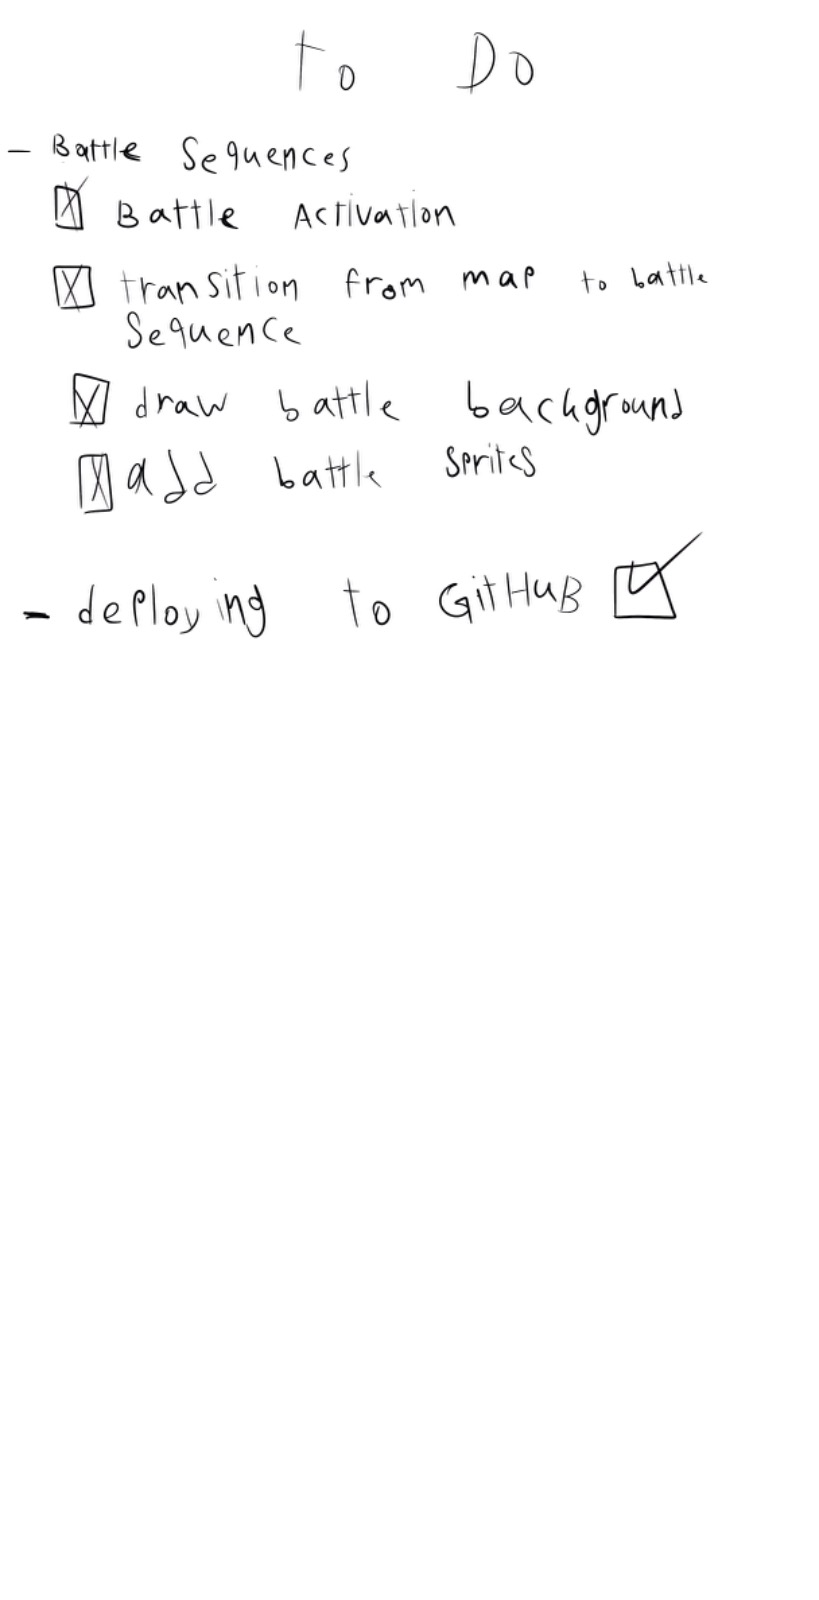 To Do
- Battle Sequences
☒ Battle Activation
☒ transition from map to battle
Sequence
☒ draw battle background
☒ add battle sprites
- deploying to GitHuB ☑